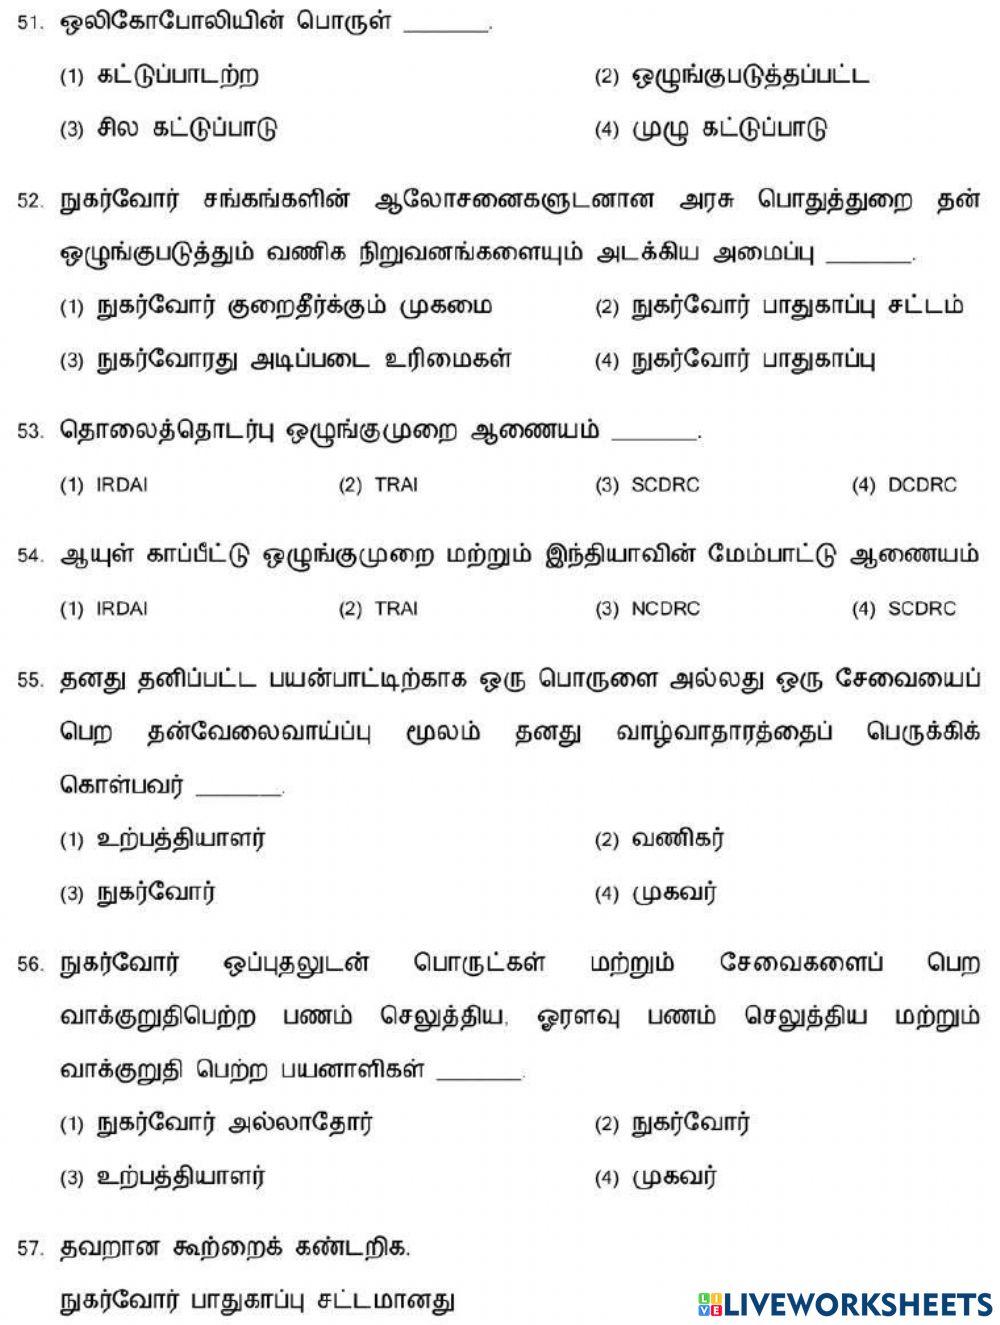 51. ஒலிகோபோலியின் பொருள் ________.
(1) கட்டுப்பாடற்ற (2) ஒழுங்குபடுத்தப்பட்ட
(3) சில கட்டுப்பாடு (4) முழு கட்டுப்பாடு
52. நுகர்வோர் சங்கங்களின் ஆலோசனைகளுடனான அரசு பொதுத்துறை தன்
ஒழுங்குபடுத்தும் வணிக நிறுவனங்களையும் அடக்கிய அமைப்பு ________.
(1) நுகர்வோர் குறைதீர்க்கும் முகமை (2) நுகர்வோர் பாதுகாப்பு சட்டம்
(3) நுகர்வோரது அடிப்படை உரிமைகள் (4) நுகர்வோர் பாதுகாப்பு
53. தொலைத்தொடர்பு ஒழுங்குமுறை ஆணையம் ________.
(1) IRDAI (2) TRAI (3) SCDRC (4) DCDRC
54. ஆயுள் காப்பீட்டு ஒழுங்குமுறை மற்றும் இந்தியாவின் மேம்பாட்டு ஆணையம்
(1) IRDAI (2) TRAI (3) NCDRC (4) SCDRC
55. தனது தனிப்பட்ட பயன்பாட்டிற்காக ஒரு பொருளை அல்லது ஒரு சேவையைப்
பெற தன்வேலைவாய்ப்பு மூலம் தனது வாழ்வாதாரத்தைப் பெருக்கிக்
கொள்பவர் ________.
(1) உற்பத்தியாளர் (2) வணிகர்
(3) நுகர்வோர் (4) முகவர்
56. நுகர்வோர் ஒப்புதலுடன் பொருட்கள் மற்றும் சேவைகளைப் பெற
வாக்குறுதிபெற்ற பணம் செலுத்திய, ஓரளவு பணம் செலுத்திய மற்றும்
வாக்குறுதி பெற்ற பயனாளிகள் ________.
(1) நுகர்வோர் அல்லாதோர் (2) நுகர்வோர்
(3) உற்பத்தியாளர் (4) முகவர்
57. தவறான கூற்றைக் கண்டறிக.
நுகர்வோர் பாதுகாப்பு சட்டமானது
LIVEWORKSHEETS